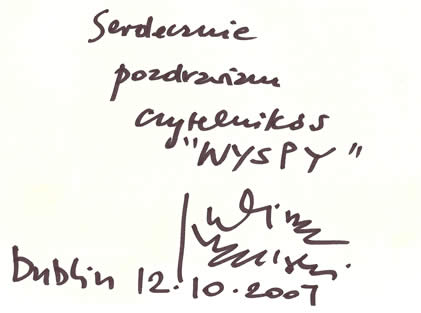 Serdecznie
pozdrawiam
czytelników
"WYSPY"
Dublin 12.10.2007